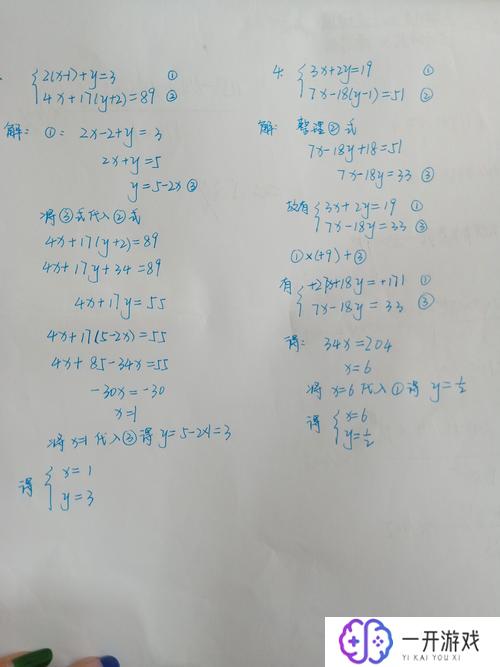 {2(x-1)+y=3 ①
4x+17(y+2)=89 ②
解: ①: 2x-2+y=3
2x+y=5
y=5-2x ③
将③式代入②式
4x+17(y+2)=89
4x+17y+34=89
4x+17y=55
4x+17(5-2x)=55
4x+85-34x=55
-30x=-30
x=1
将x=1代入③得y=5-2×1=3
得{x=1
y=3
4. {3x+2y=19 ①
7x-18(y-1)=51 ②
解: 整理②式
7x-18y+18=51
7x-18y=33 ③
故有{3x+2y=19 ①
7x-18y=33 ③
①×(+9)+③
有{+27x+18y=+171 ①
7x-18y=33 ③
得: 34x=204
x=6
将x=6代入①得 y=1/2
得{x=6
y=1/2
一开游戏
YI KAI YOU XI